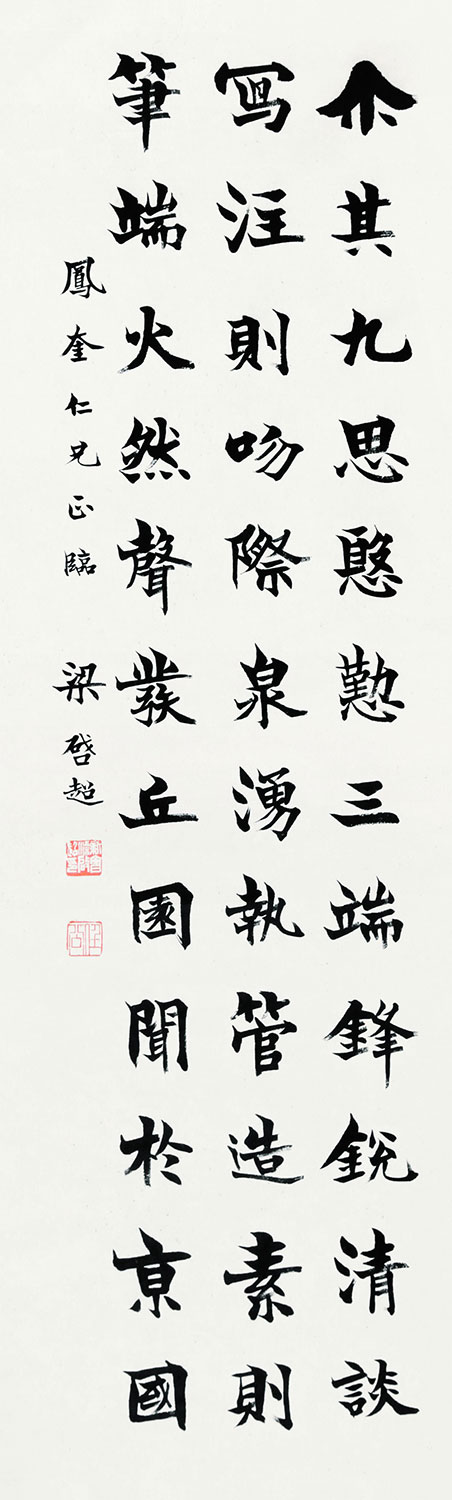 尒其九思慇懃三端鋒銳清談
寫注則吻際泉湧執管造素則
筆端火然聲發丘園聞於亰國
鳳奎仁兄正臨 梁啓超